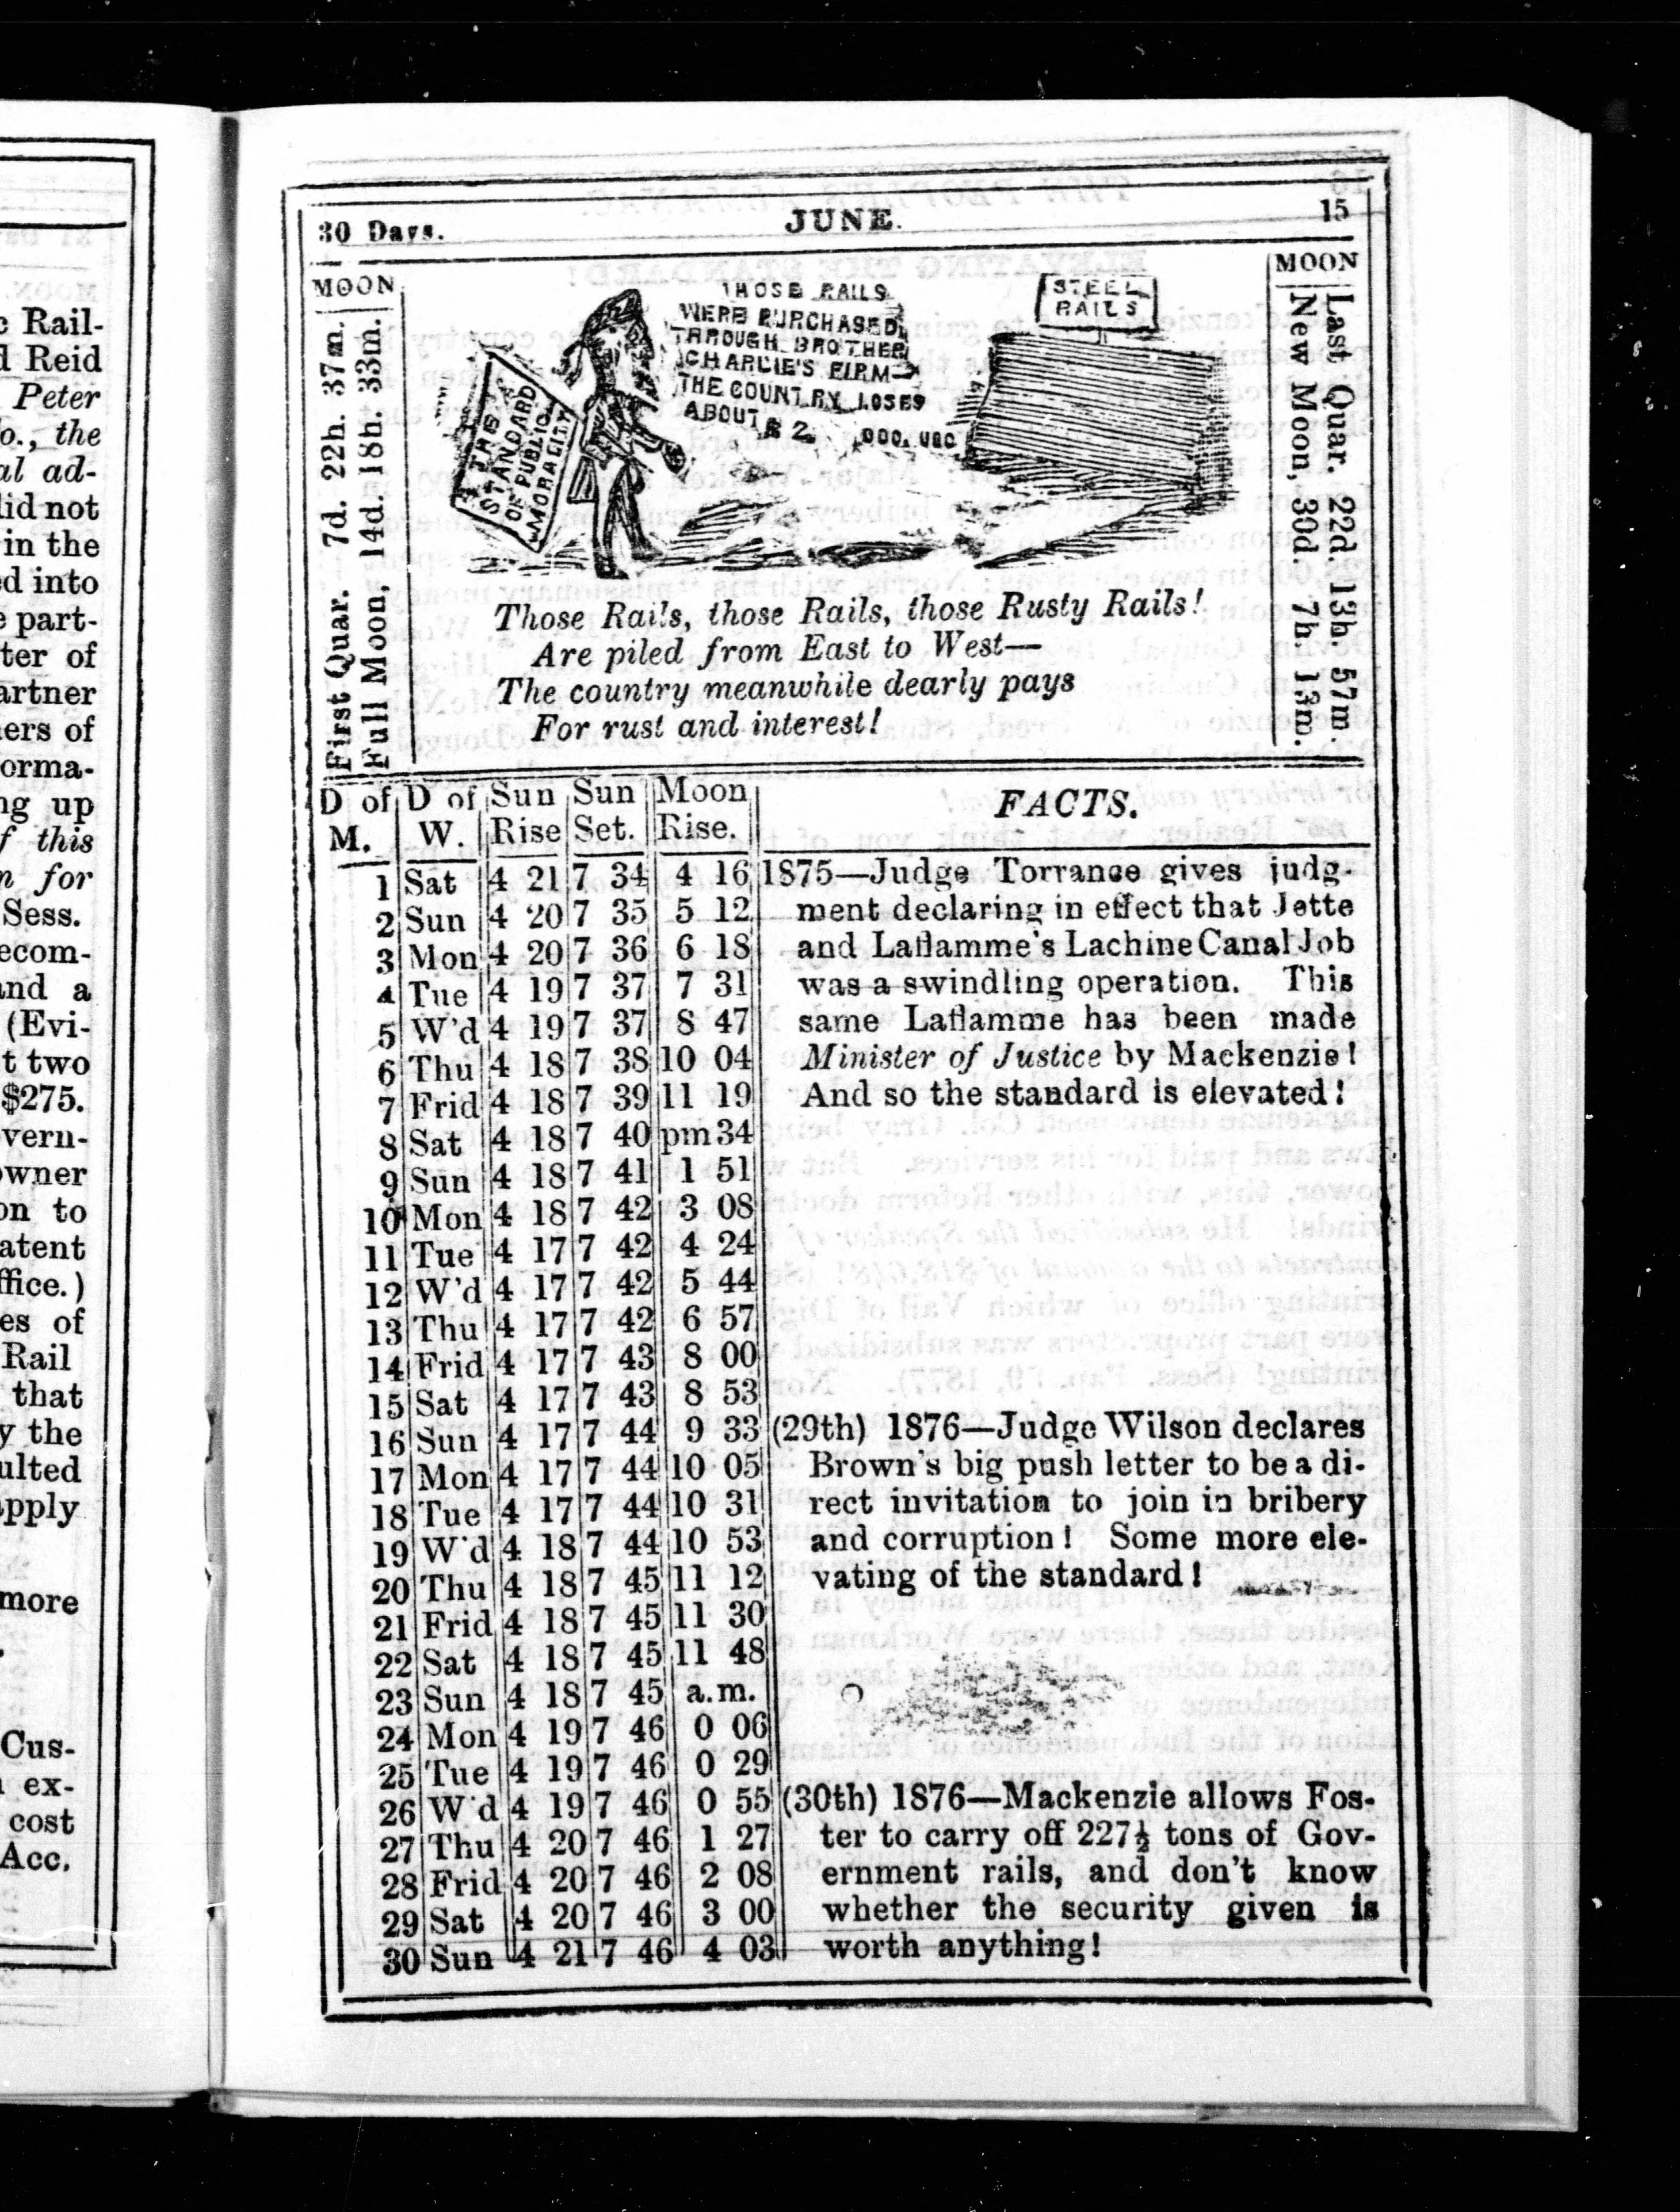 c Rail-
d Reid
Peter
o., the
al ad-
did not
in the
ed into
e part-
ter of
artner
ers of
orma-
ng up
f this
n for
Sess.
ecom-
and a
(Evi-
t two
$275.
vern-
owner
on to
atent
ffice.)
es of
Rail
that
y the
ulted
apply
more
Cus-
ex-
cost
Acc.
30 Days. JUNE. 15
MOON
First Quar. 7d. 22h. 37m.
Full Moon, 14d. 18h. 33m.
THE
STANDARD
OF PUBLIC
MORALITY
THOSE RAILS
WERE PURCHASED
THROUGH BROTHER
CHARLIE'S FIRM
THE COUNTRY LOSES
ABOUT $2,000,000
STEEL
RAILS
MOON
Last Quar. 22d. 13h. 57m.
New Moon, 30d. 7h. 13m.
Those Rails, those Rails, those Rusty Rails!
Are piled from East to West—
The country meanwhile dearly pays
For rust and interest!
D of D of Sun Sun Moon FACTS.
M. W. Rise Set. Rise.
1 Sat 4 21 7 34 4 16 1875—Judge Torrance gives judg-
2 Sun 4 20 7 35 5 12 ment declaring in effect that Jette
3 Mon 4 20 7 36 6 18 and Laflamme's Lachine Canal Job
4 Tue 4 19 7 37 7 31 was a swindling operation. This
5 W'd 4 19 7 37 8 47 same Laflamme has been made
6 Thu 4 18 7 38 10 04 Minister of Justice by Mackenzie!
7 Frid 4 18 7 39 11 19 And so the standard is elevated!
8 Sat 4 18 7 40 pm 34
9 Sun 4 18 7 41 1 51
10 Mon 4 18 7 42 3 08
11 Tue 4 17 7 42 4 24
12 W'd 4 17 7 42 5 44
13 Thu 4 17 7 42 6 57
14 Frid 4 17 7 43 8 00
15 Sat 4 17 7 43 8 53
16 Sun 4 17 7 44 9 33 (29th) 1876—Judge Wilson declares
17 Mon 4 17 7 44 10 05 Brown's big push letter to be a di-
18 Tue 4 17 7 44 10 31 rect invitation to join in bribery
19 W'd 4 18 7 44 10 53 and corruption! Some more ele-
20 Thu 4 18 7 45 11 12 vating of the standard!
21 Frid 4 18 7 45 11 30
22 Sat 4 18 7 45 11 48
23 Sun 4 18 7 45 a.m.
24 Mon 4 19 7 46 0 06
25 Tue 4 19 7 46 0 29
26 W'd 4 19 7 46 0 55 (30th) 1876—Mackenzie allows Fos-
27 Thu 4 20 7 46 1 27 ter to carry off 227½ tons of Gov-
28 Frid 4 20 7 46 2 08 ernment rails, and don't know
29 Sat 4 20 7 46 3 00 whether the security given is
30 Sun 4 21 7 46 4 03 worth anything!